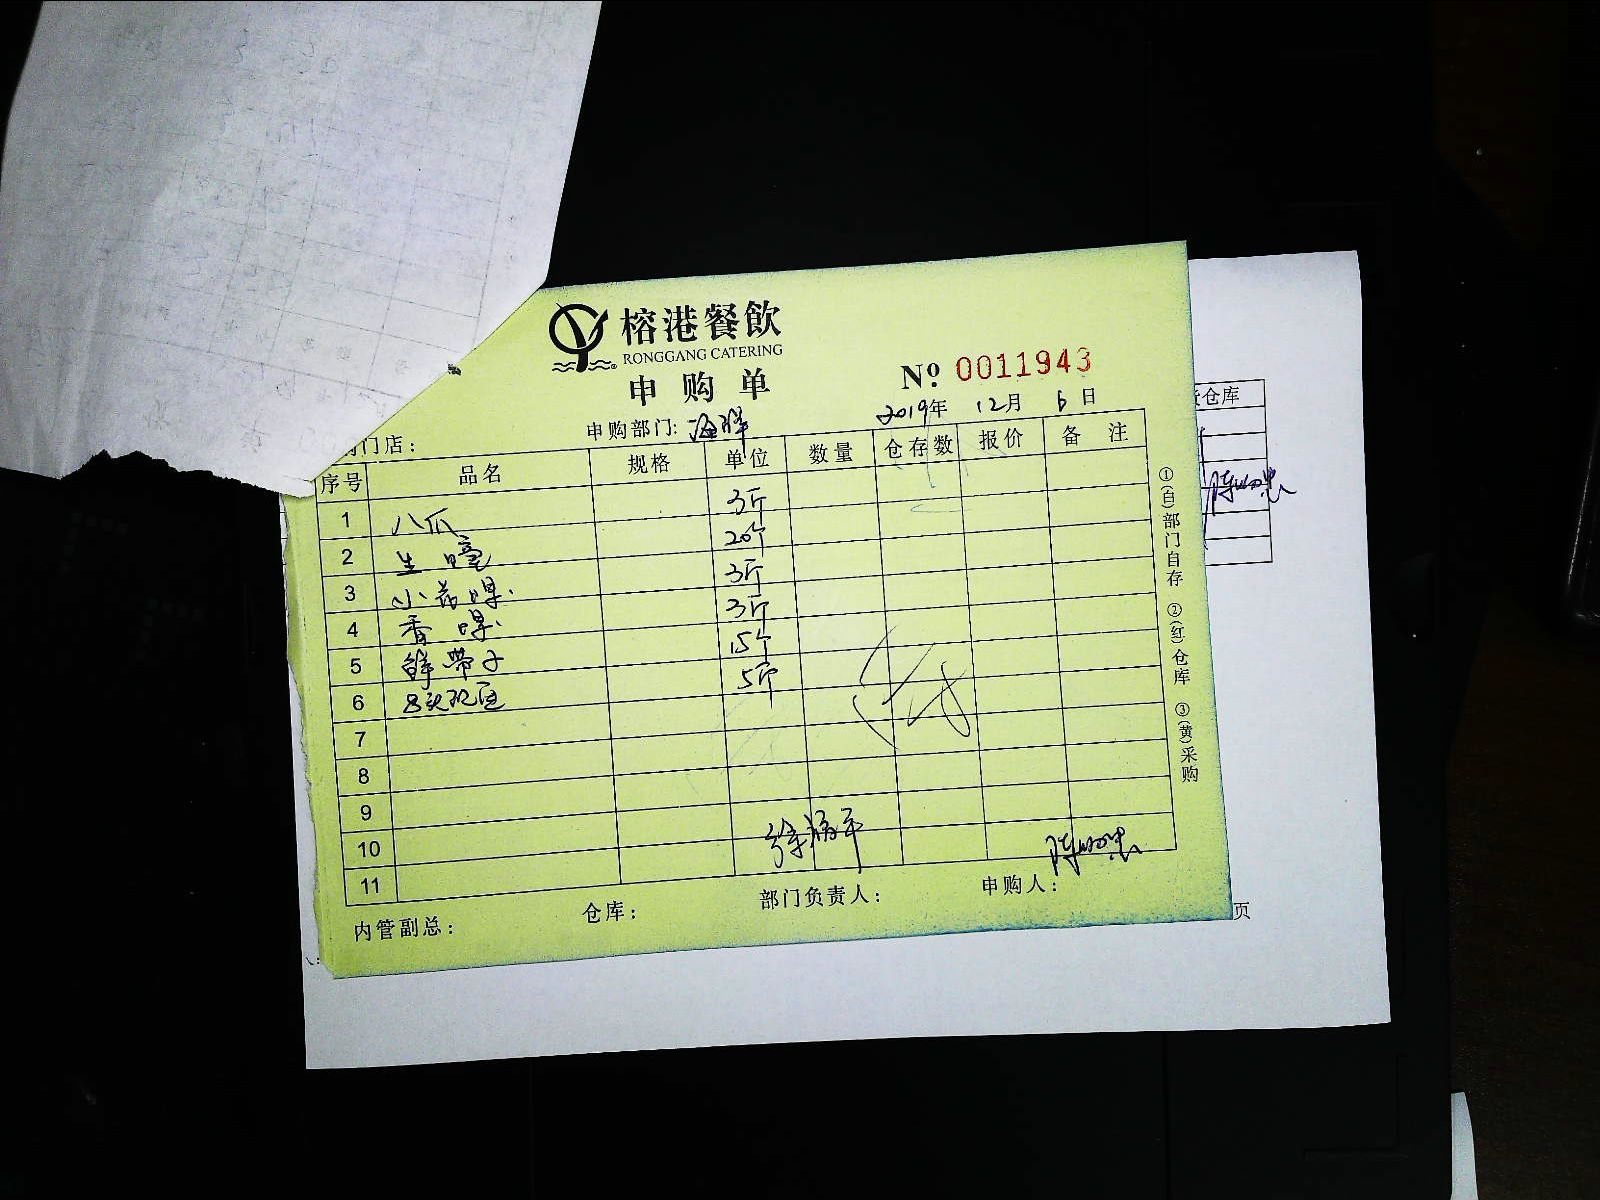 榕港餐飲
RONGGANG CATERING
申购单
№ 0011943
申购部门: 海鲜
2019年 12月 6日
门店:
序号 品名 规格 单位 数量 仓存数 报价 备注
1 八爪 3斤
2 生蠔 20个
3 小花螺 3斤
4 香螺 3斤
5 鲜带子 15个
6 5斤
7
8
9
10
11
内管副总: 仓库: 部门负责人: 申购人:
①(白)部门自存 ②(红)仓库 ③(黄)采购
仓库
页